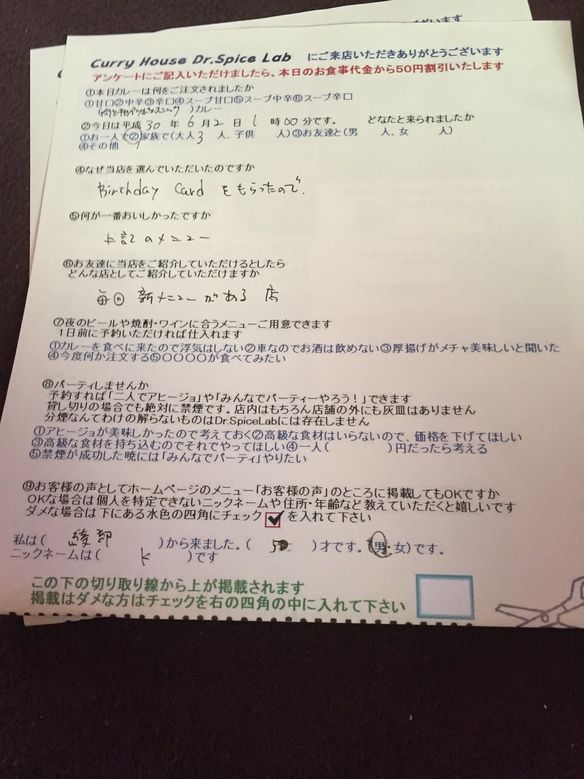 Curry House Dr.Spice Lab にご来店いただきありがとうございます
アンケートにご記入いただけましたら、本日のお食事代金から50円割引いたします
①本日カレーは何をご注文されましたか
①甘口②中辛③辛口④スープ甘口⑤スープ中辛⑥スープ辛口
)カレー
②今日は平成 30 年 6 月 2 日 1 時 00 分です。 どなたと来られましたか
①お一人で②家族で(大人 3 人、子供 人)③お友達と(男 人、女 人)
④その他
④なぜ当店を選んでいただいたのですか
Birthday Card をもらったので.
⑤何が一番おいしかったですか
上記のメニュー
⑥お友達に当店をご紹介していただけるとしたら
どんな店としてご紹介していただけますか
毎回 新メニューがある 店
⑦夜のビールや焼酎・ワインに合うメニューご用意できます
1日前に予約いただければ仕入れます
①カレーを食べに来たので浮気はしない②車なのでお酒は飲めない③厚揚げがメチャ美味しいと聞いた
④今度何か注文する⑤〇〇〇〇が食べてみたい
⑧パーティしませんか
予約すれば「二人でアヒージョ」や「みんなでパーティーやろう！」できます
貸し切りの場合でも絶対に禁煙です。店内はもちろん店舗の外にも灰皿はありません
分煙なんてわけの解らないものはDr.SpiceLabには存在しません
①アヒージョが美味しかったので考えておく②高級な食材はいらないので、価格を下げてほしい
③高級な食材を持ち込むのでそれでやってほしい④一人( )円だったら考える
⑤禁煙が成功した暁には「みんなでパーティ」やりたい
⑨お客様の声としてホームページのメニュー「お客様の声」のところに掲載してもOKですか
OKな場合は個人を特定できないニックネームや住所・年齢など教えていただくと嬉しいです
ダメな場合は下にある水色の四角にチェック を入れて下さい
私は( 綾部 )から来ました。( )才です。(男・女)です。
ニックネームは( K )です
この下の切り取り線から上が掲載されます
掲載はダメな方はチェックを右の四角の中に入れて下さい